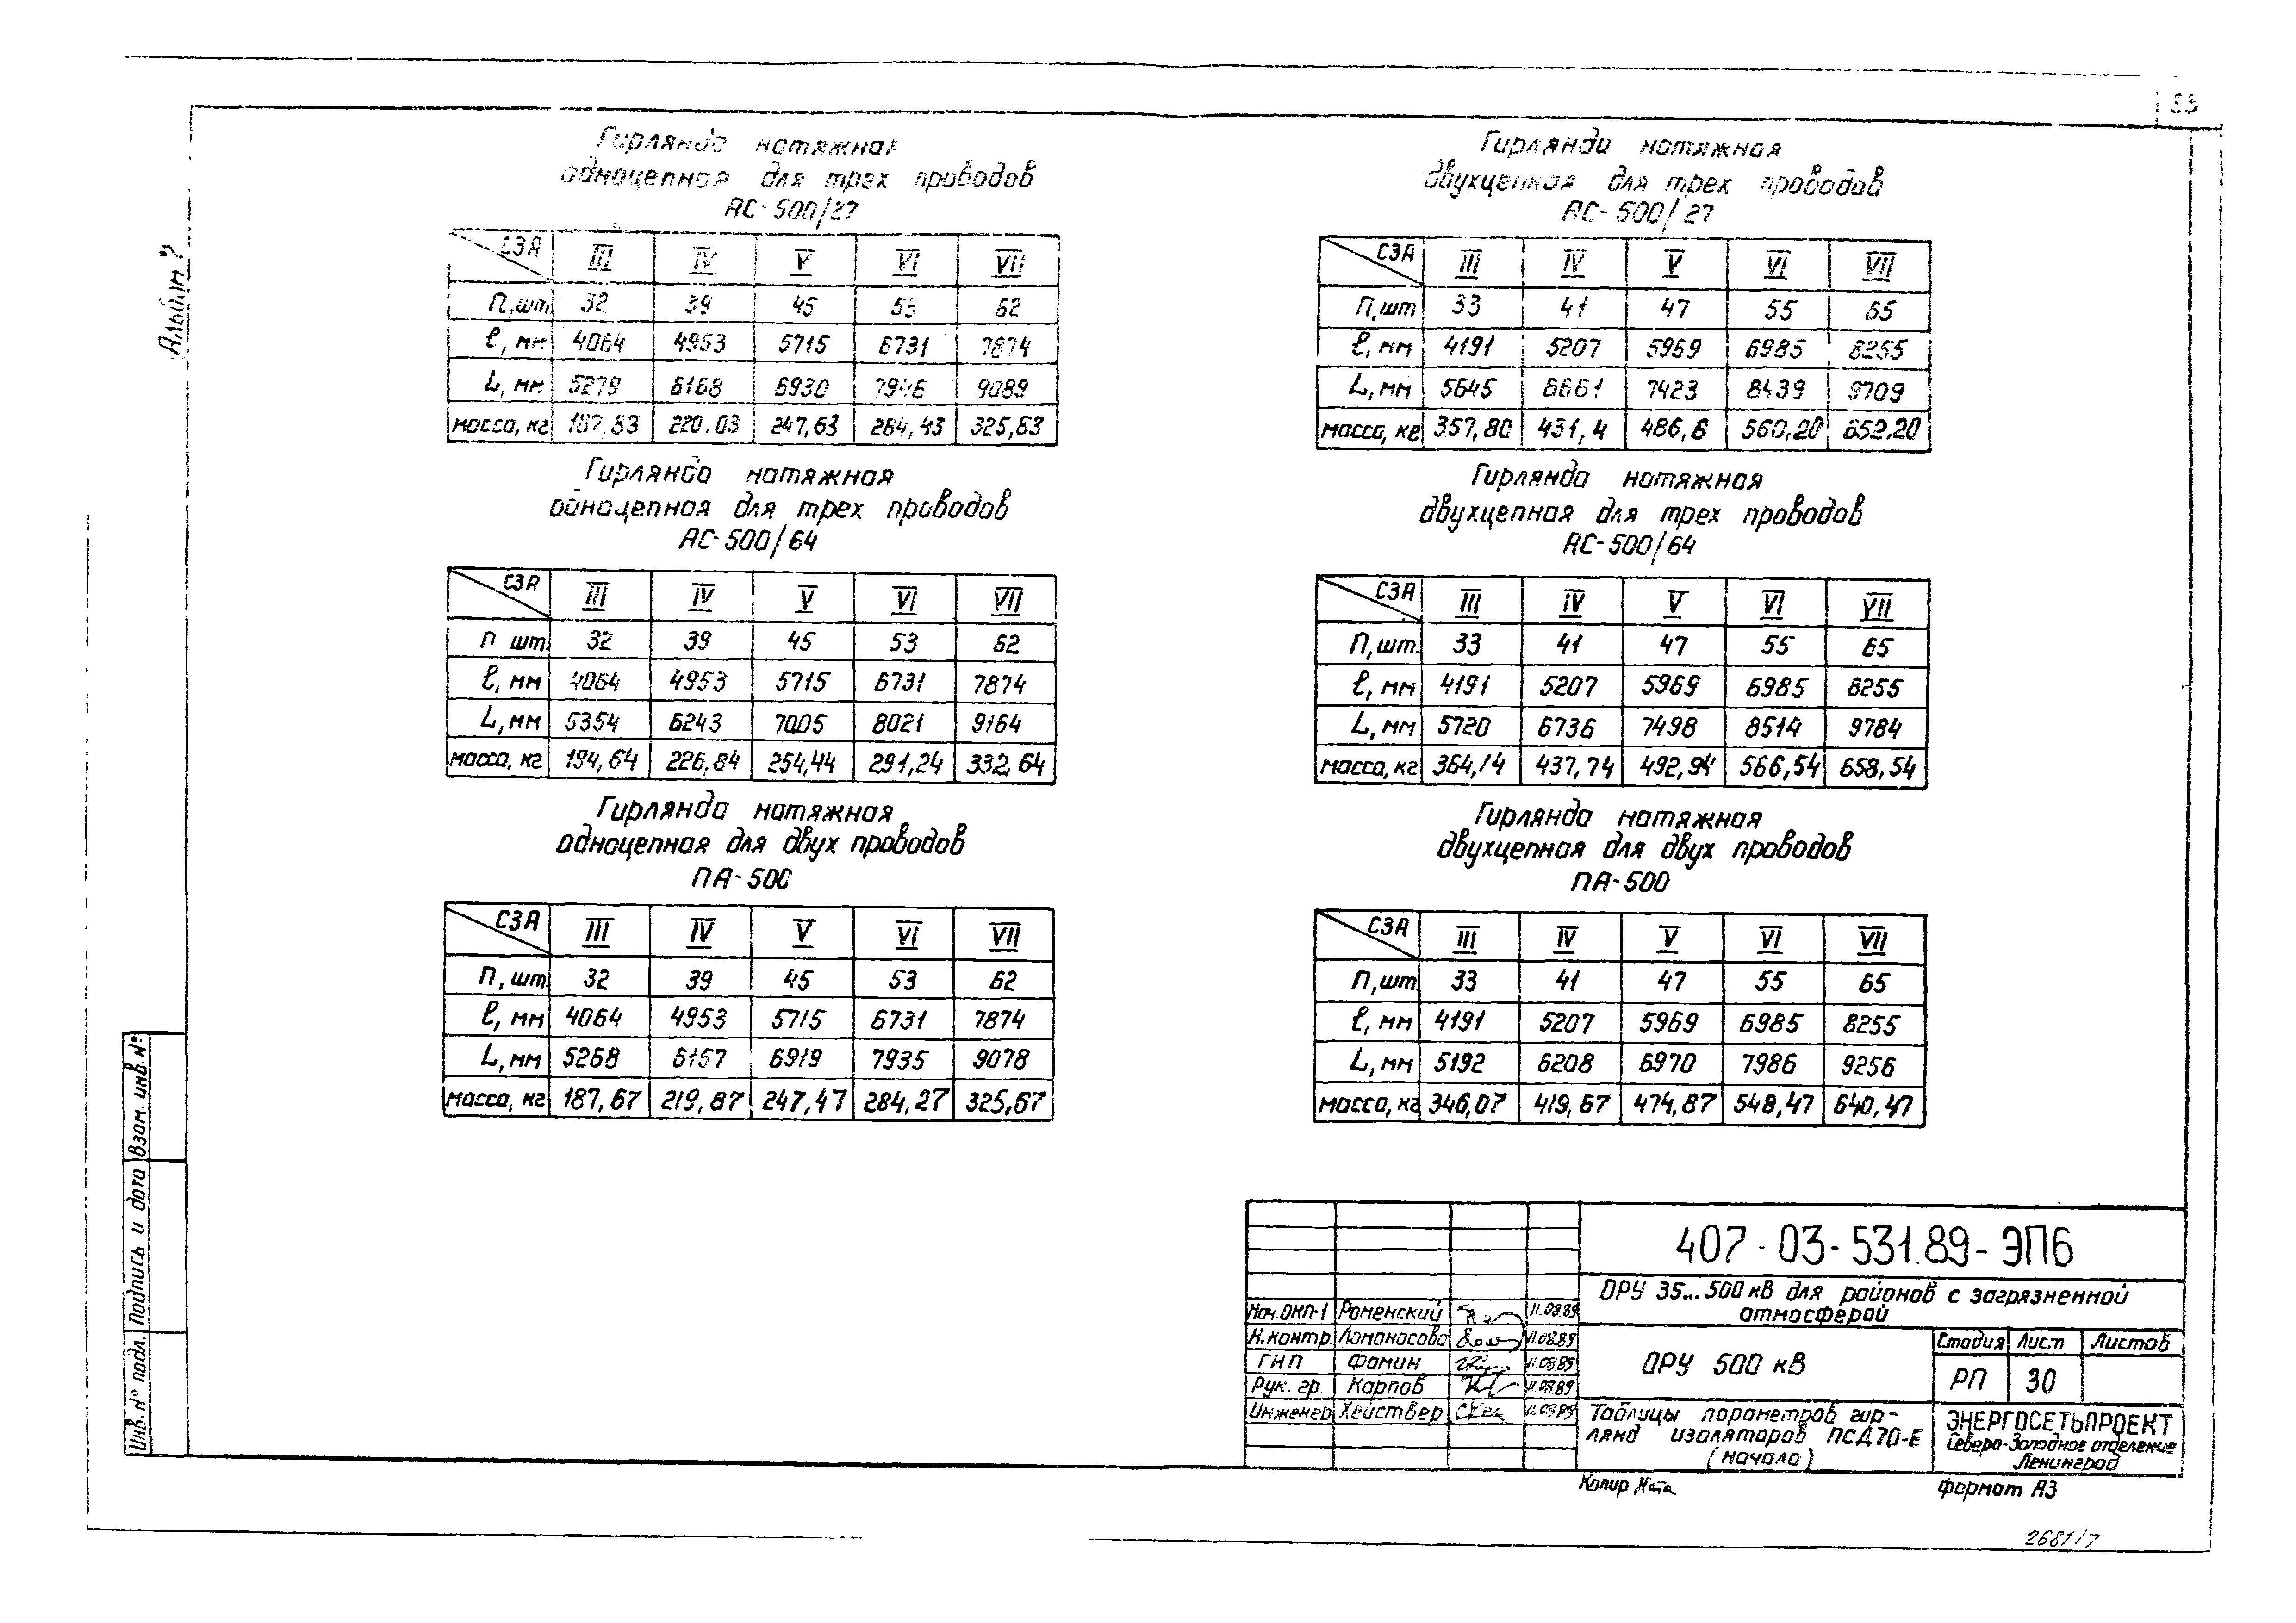 33
Альбом 7
Гирлянда натяжная
одноцепная для трех проводов
АС-500/27
СЗА III IV V VI VII
n, шт. 32 39 45 53 62
ℓ, мм 4064 4953 5715 6731 7874
L, мм 5279 6168 6930 7946 9089
масса, кг 187,83 220,03 247,63 284,43 325,83
Гирлянда натяжная
одноцепная для трех проводов
АС-500/64
СЗА III IV V VI VII
n шт. 32 39 45 53 62
ℓ, мм 4064 4953 5715 6731 7874
L, мм 5354 6243 7005 8021 9164
масса, кг 194,64 226,84 254,44 291,24 332,64
Гирлянда натяжная
одноцепная для двух проводов
ПА-500
СЗА III IV V VI VII
n, шт. 32 39 45 53 62
ℓ, мм 4064 4953 5715 6731 7874
L, мм 5268 6157 6919 7935 9078
масса, кг 187,67 219,87 247,47 284,27 325,67
Гирлянда натяжная
двухцепная для трех проводов
АС-500/27
СЗА III IV V VI VII
n, шт 33 41 47 55 65
ℓ, мм 4191 5207 5969 6985 8255
L, мм 5645 6661 7423 8439 9709
масса, кг 357,80 431,4 486,6 560,20 652,20
Гирлянда натяжная
двухцепная для трех проводов
АС-500/64
СЗА III IV V VI VII
n, шт. 33 41 47 55 65
ℓ, мм 4191 5207 5969 6985 8255
L, мм 5720 6736 7498 8514 9784
масса, кг 364,14 437,74 492,94 566,54 658,54
Гирлянда натяжная
двухцепная для двух проводов
ПА-500
СЗА III IV V VI VII
n, шт. 33 41 47 55 65
ℓ, мм 4191 5207 5969 6985 8255
L, мм 5192 6208 6970 7986 9256
масса, кг 346,07 419,67 474,87 548,47 640,47
Взам. инв. №
Подпись и дата
Инв. № подл.
407-03-531.89-ЭП6
ОРУ 35...500 кВ для районов с загрязненной
атмосферой
Нач.ОКП-1 Роменский 11.08.89
Н.контр. Ломоносова 11.08.89
ГИП Фомин 11.08.89
Рук. гр. Карпов 11.08.89
Инженер Хействер 11.08.89
ОРУ 500 кВ
Стадия Лист Листов
РП 30
Таблицы параметров гир-
лянд изоляторов ПСД70-Е
(начало)
ЭНЕРГОСЕТЬПРОЕКТ
Северо-Западное отделение
Ленинград
Копир Ната
Формат А3
2681/7